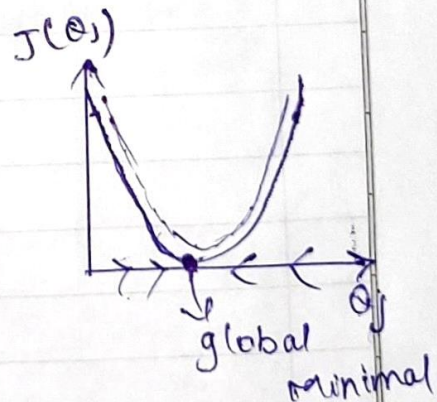 J(θj)
θj
global
minimal